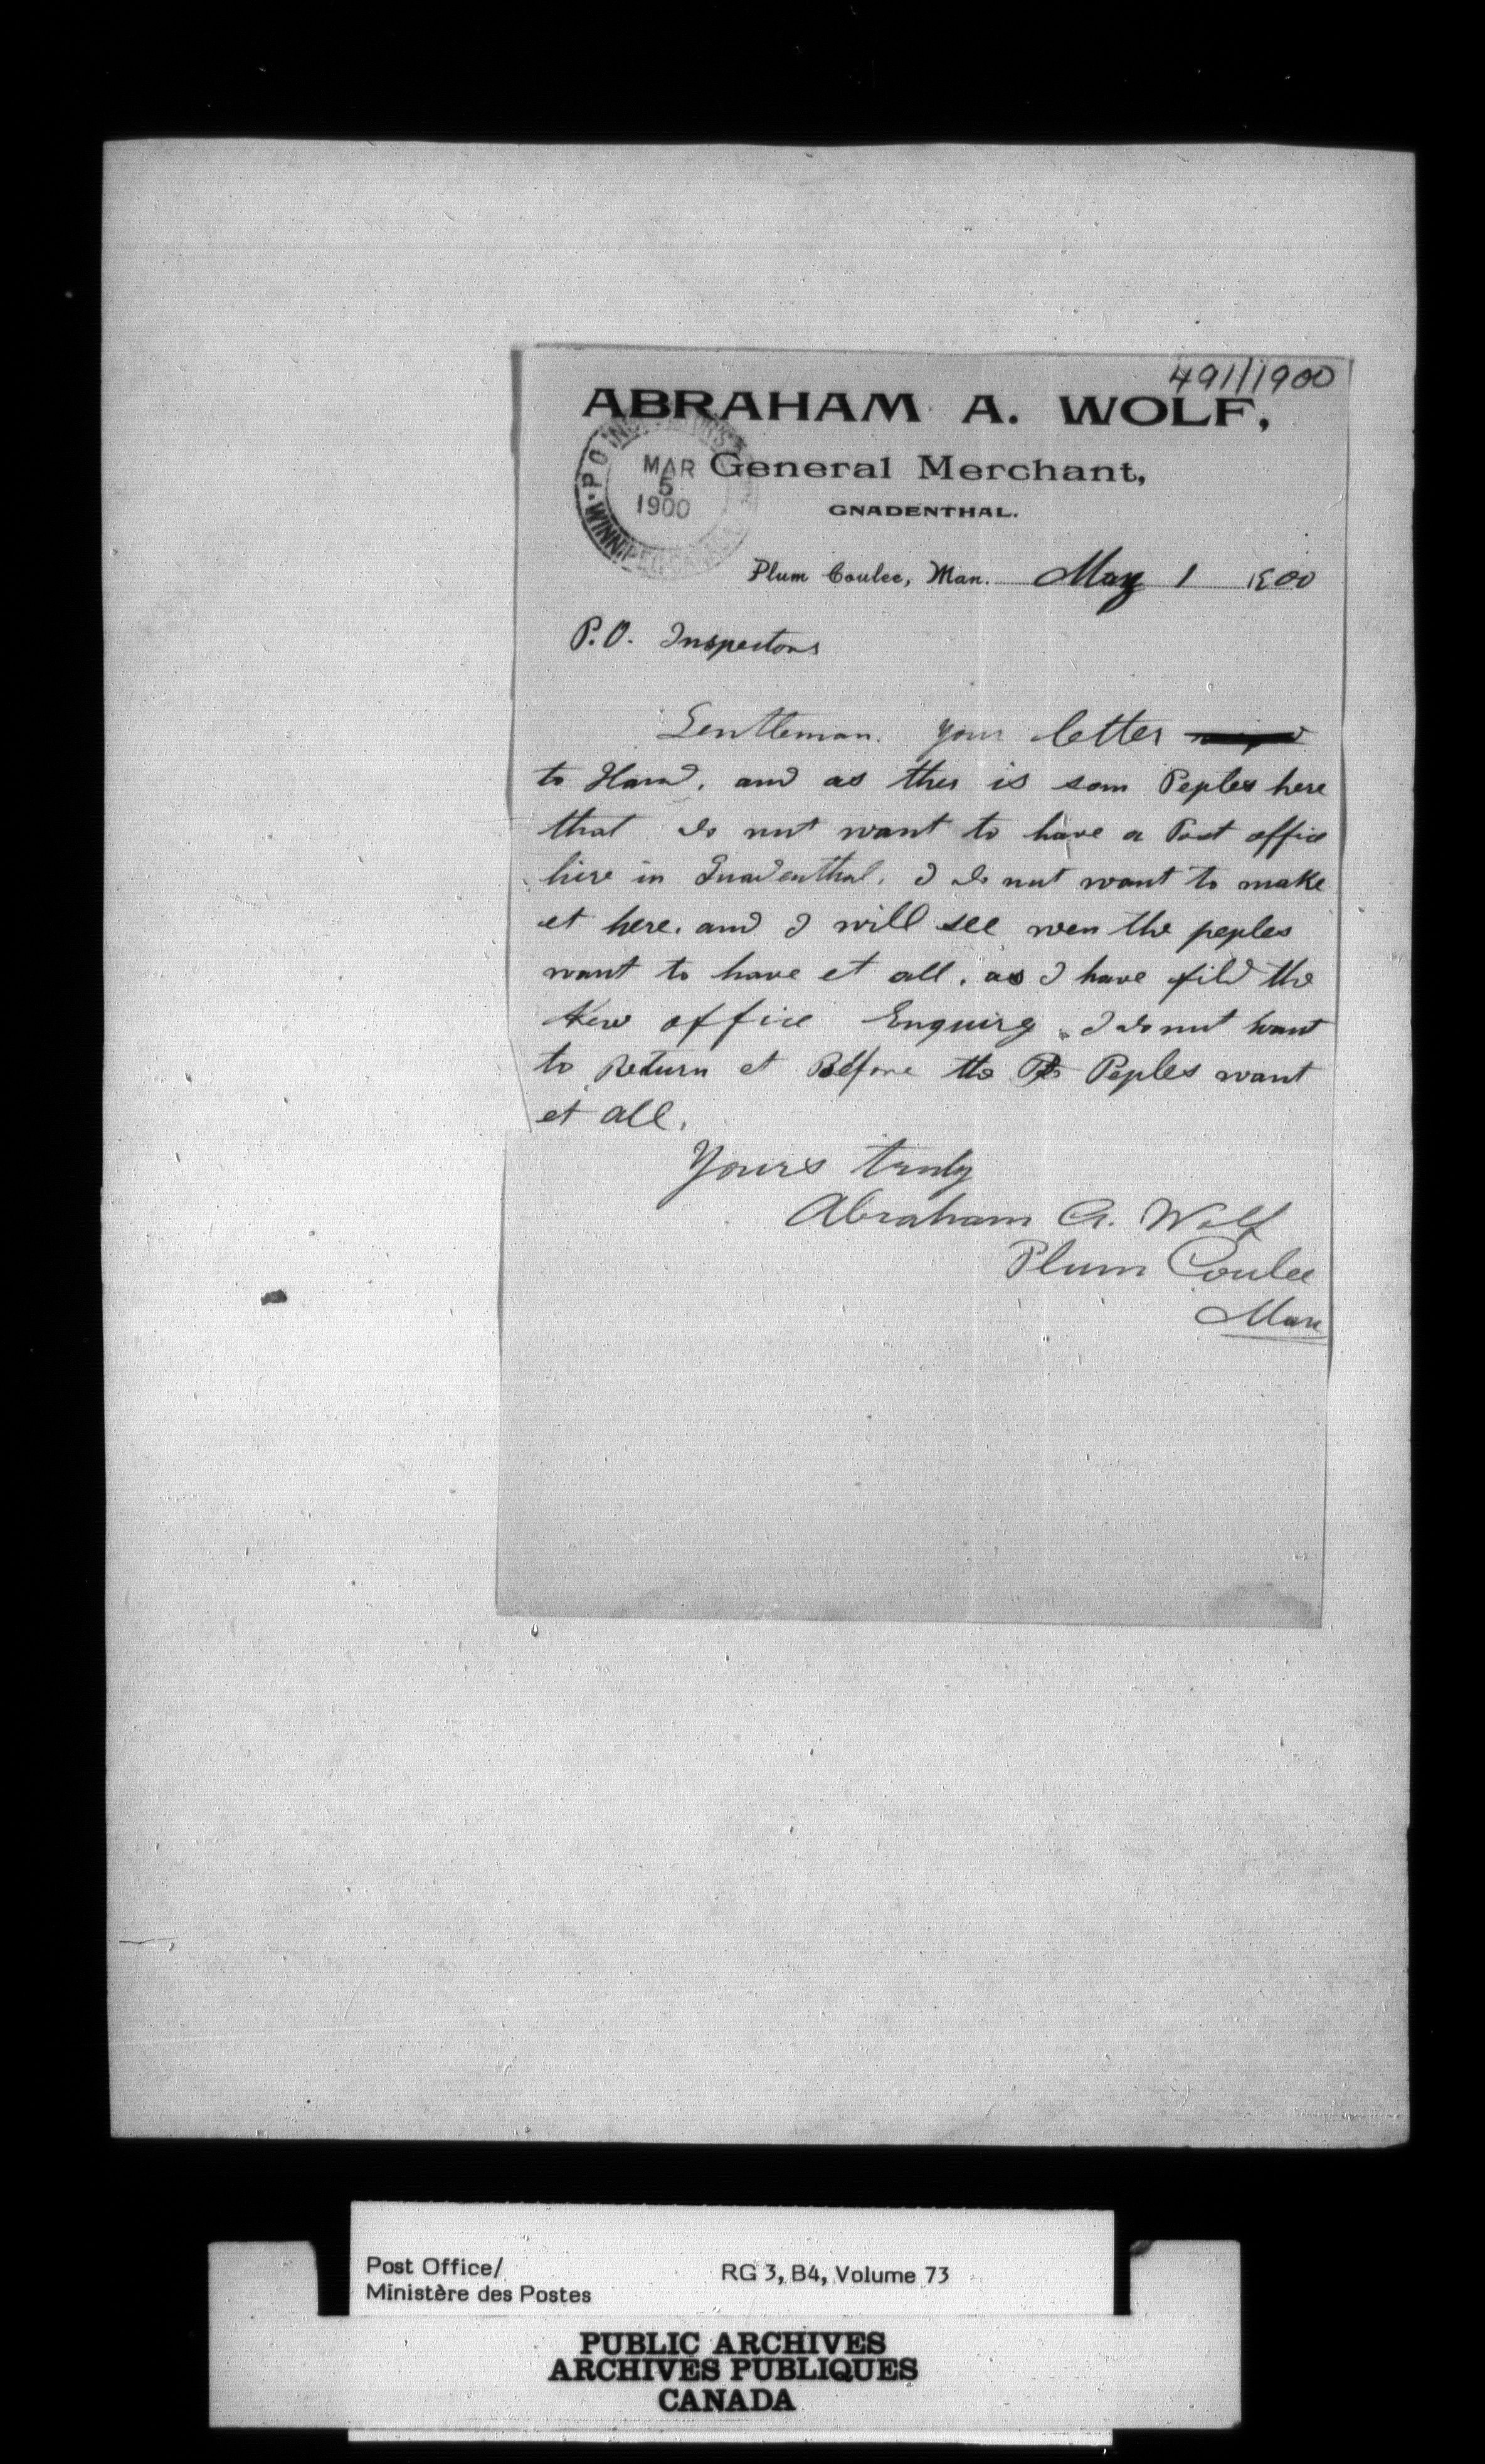 491/1900
ABRAHAM A. WOLF,
General Merchant,
GNADENTHAL.
P.O. WINNIPEG
MAR
5
1900
Plum Coulee, Man. May 1 1900
P.O. Inspectors
Gentleman. Your letter
to Hand. and as ther is som Peples here
that do nut want to have a Post office
hire in Gnadenthal. I do nut want to make
et here. and I will see wen the peples
want to have et all. as I have fild the
New office Enquirg. I do nut want
to Return et Before the Pe Peples want
et all.
Yours truly
Abraham A. Wolf
Plum Coulee
Man
Post Office/
Ministère des Postes
RG 3, B4, Volume 73
PUBLIC ARCHIVES
ARCHIVES PUBLIQUES
CANADA